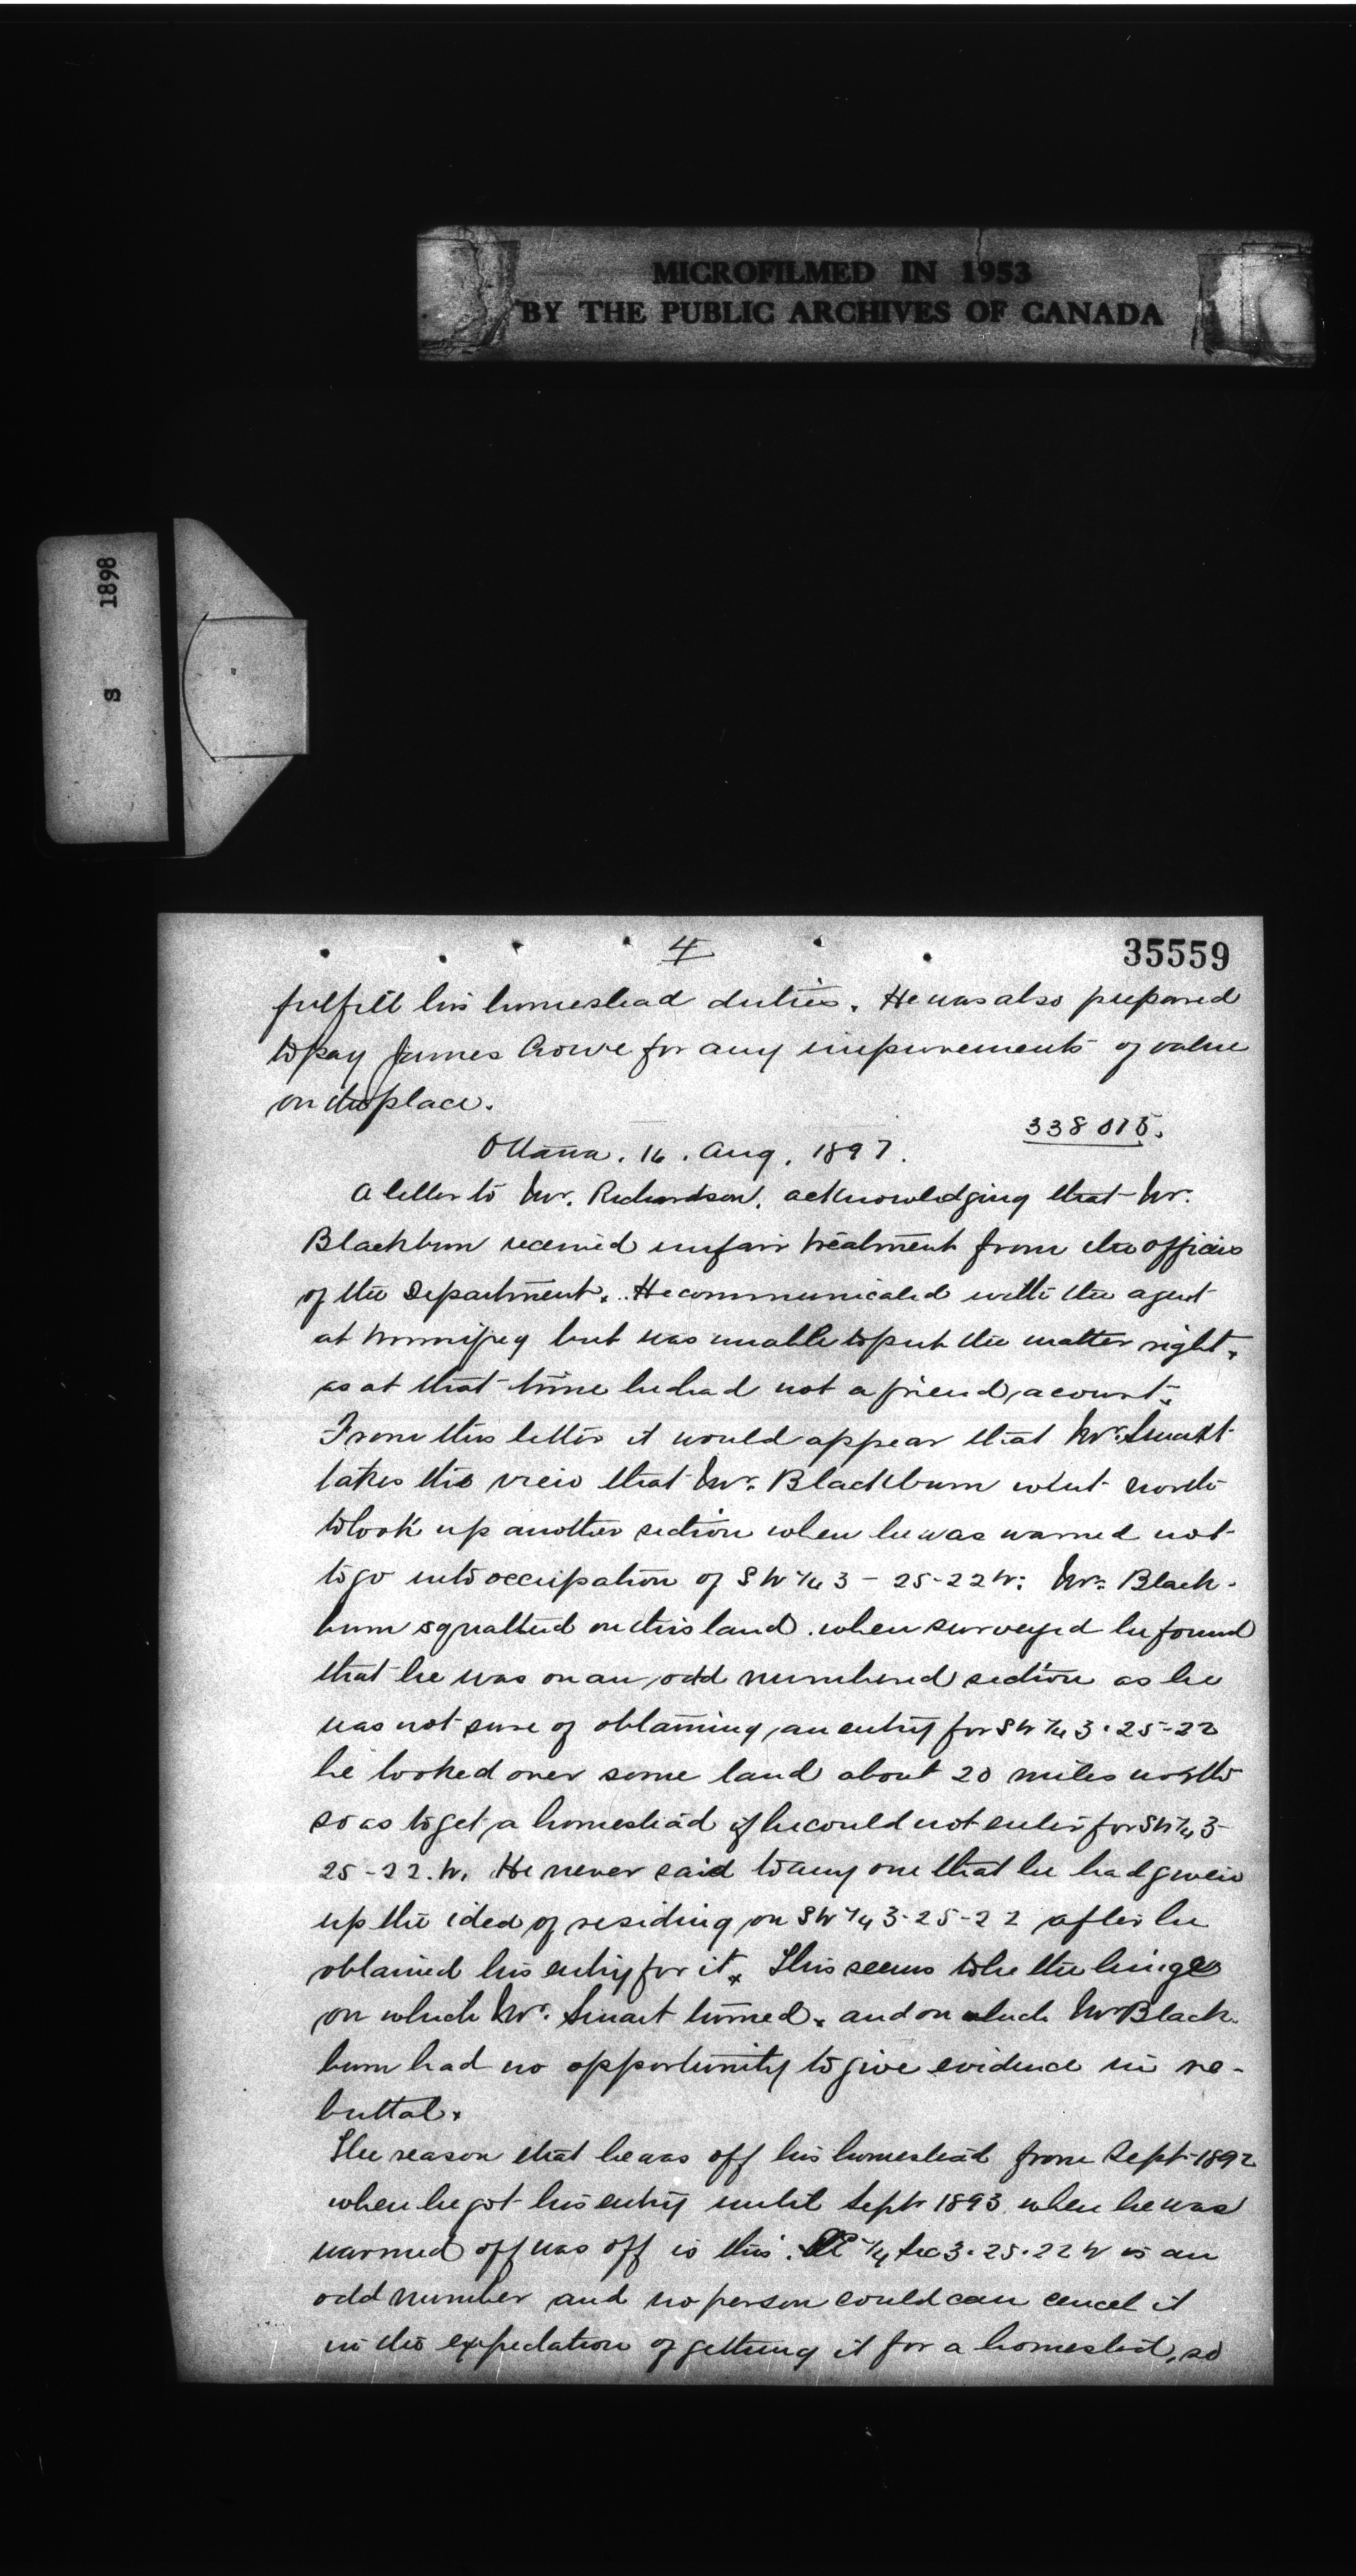 MICROFILMED IN 1953
BY THE PUBLIC ARCHIVES OF CANADA
S 1898
4
35559
fulfill his homestead duties. He was also prepared
to pay James Crowe for any improvements of value
on the place.
338015.
Ottawa. 16. Aug. 1897.
A letter to Mr. Richardson, acknowledging that Mr.
Blackburn received unfair treatment from the officers
of the Department. He communicated with the agent
at Winnipeg but was unable to put the matter right.
as at that time he had not a friend a court.
From this letter it would appear that Mr. Smart
takes the view that Mr. Blackburn went north
to look up another section when he was warned not
to go into occupation of SW 1/4 3-25-22 W: Mr. Black-
burn squatted on this land. when surveyed he found
that he was on an odd numbered section as he
was not sure of obtaining an entry for SW 1/4 3-25-22
he looked over some land about 20 miles north
so as to get a homestead if he could not enter for SW 1/4 3-
25-22.W. He never said to any one that he had given
up the idea of residing on SW 1/4 3-25-22 after he
obtained his entry for it. This seems to be the hinge
on which Mr. Smart turned. and on which Mr Black
burn had no opportunity to give evidence in re-
buttal.
The reason that he was off his homestead from Sept-1892
when he got his entry until Septr 1893 when he was
warned off was off is this. 1/4 Sec 3-25-22 W is an
odd number and no person could can cancel it
in the expectation of getting it for a homestead, so